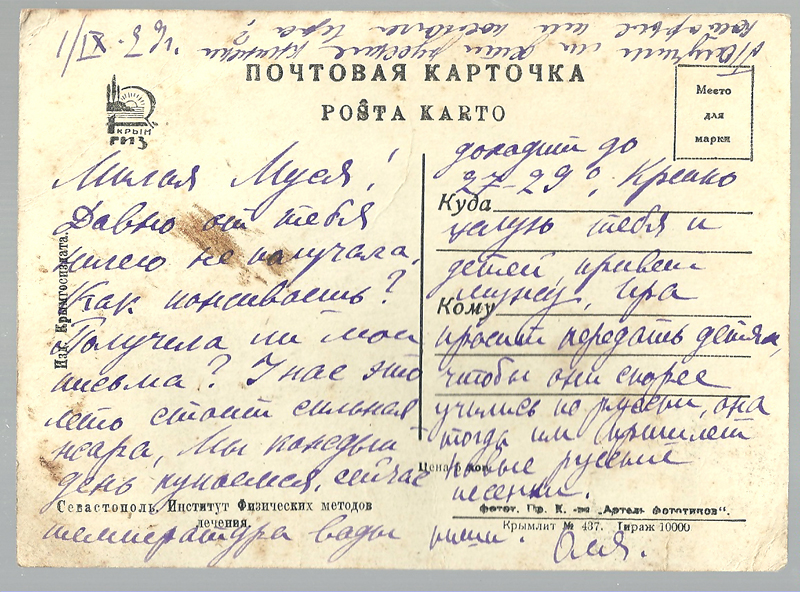 Получили ли дети русские книжки
которые им послала Ира?
ПОЧТОВАЯ КАРТОЧКА
POŜTA KARTO
КРЫМ
ГИЗ
Место
для
марки
Милая Муся!
Давно от тебя
ничего не получала,
Как поживаешь?
Получела ли мои
письма? У нас это
лето стоит сильная
жара, Мы каждый
день купаемся, сейчас
температура воды
доходит до
27-29°, Крепко
Куда
целую тебя и
детей, привет
мужу, Ира
Кому
просит передать детям,
чтобы они скорее
учились по русски, она
тогда им пришлет
новые русские
песенки.
пиши. Оля.
Изд. Крымгосиздата.
Цена 5 коп.
Севастополь. Институт Физических методов
лечения.
фотот. Пр. К. -ва „Артель Фототипов“.
Крымлит № 437. Тираж 10000